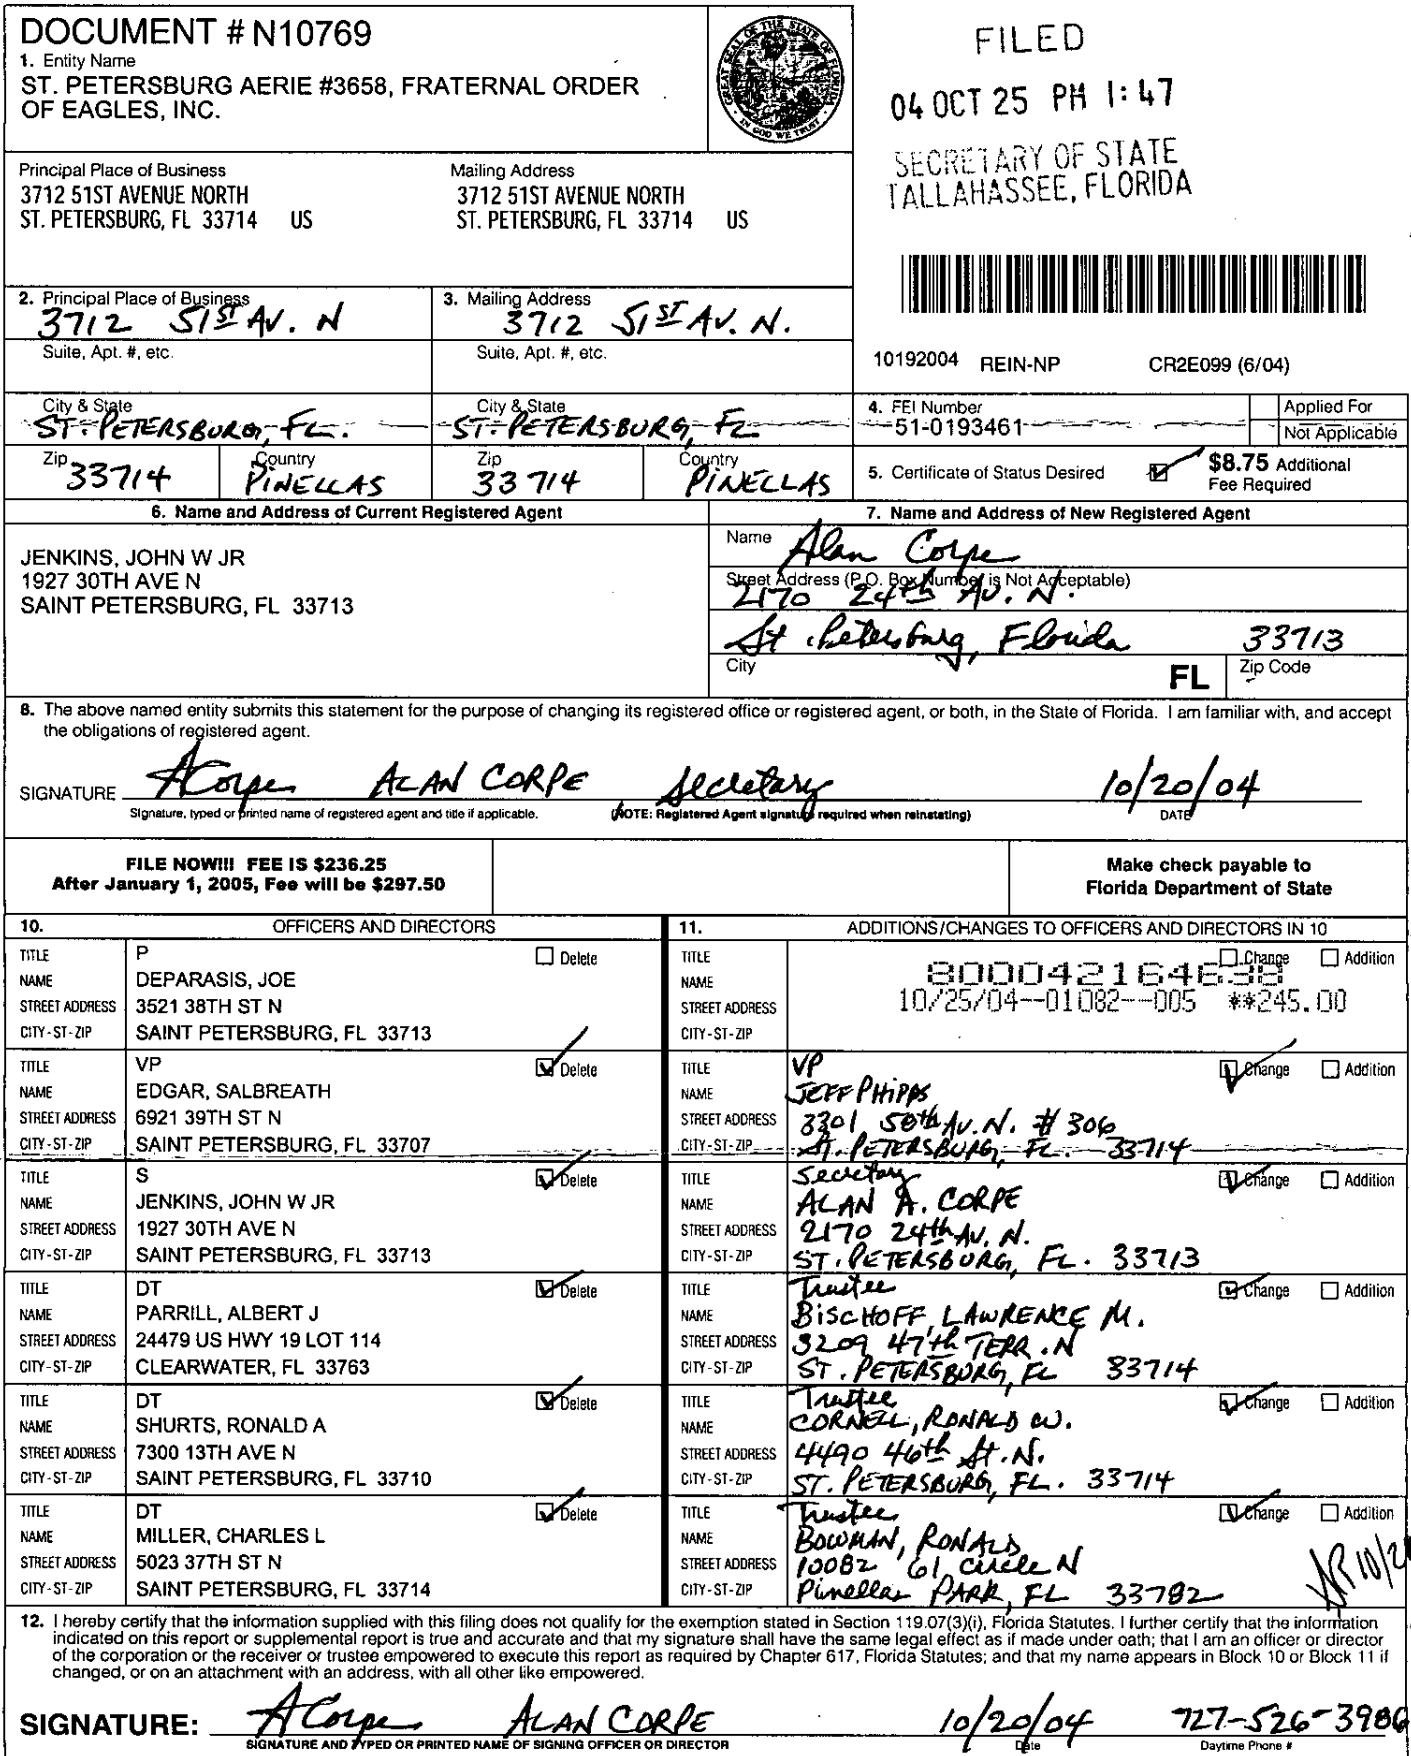 DOCUMENT # N10769
1. Entity Name
ST. PETERSBURG AERIE #3658, FRATERNAL ORDER
OF EAGLES, INC.
GREAT SEAL OF THE STATE OF FLORIDA
IN GOD WE TRUST
FILED
04 OCT 25 PM 1:47
SECRETARY OF STATE
TALLAHASSEE, FLORIDA
Principal Place of Business
3712 51ST AVENUE NORTH
ST. PETERSBURG, FL 33714 US
Mailing Address
3712 51ST AVENUE NORTH
ST. PETERSBURG, FL 33714 US
10192004 REIN-NP CR2E099 (6/04)
2. Principal Place of Business
3712 51ST AV. N
Suite, Apt. #, etc.
City & State
ST. PETERSBURG, FL.
Zip 33714 Country PINELLAS
3. Mailing Address
3712 51ST AV. N.
Suite, Apt. #, etc.
City & State
ST. PETERSBURG, FL
Zip 33714 Country PINELLAS
4. FEI Number
51-0193461
Applied For
Not Applicable
5. Certificate of Status Desired $8.75 Additional
Fee Required
6. Name and Address of Current Registered Agent
JENKINS, JOHN W JR
1927 30TH AVE N
SAINT PETERSBURG, FL 33713
7. Name and Address of New Registered Agent
Name Alan Corpe
Street Address (P.O. Box Number is Not Acceptable)
2170 24th Av. N.
St. Petersburg, Florida 33713
City FL Zip Code
8. The above named entity submits this statement for the purpose of changing its registered office or registered agent, or both, in the State of Florida. I am familiar with, and accept
the obligations of registered agent.
SIGNATURE ACorpe ALAN CORPE Secretary 10/20/04
Signature, typed or printed name of registered agent and title if applicable. (NOTE: Registered Agent signature required when reinstating) DATE
FILE NOW!!! FEE IS $236.25
After January 1, 2005, Fee will be $297.50
Make check payable to
Florida Department of State
10. OFFICERS AND DIRECTORS
TITLE P Delete
NAME DEPARASIS, JOE
STREET ADDRESS 3521 38TH ST N
CITY-ST-ZIP SAINT PETERSBURG, FL 33713
TITLE VP Delete
NAME EDGAR, SALBREATH
STREET ADDRESS 6921 39TH ST N
CITY-ST-ZIP SAINT PETERSBURG, FL 33707
TITLE S Delete
NAME JENKINS, JOHN W JR
STREET ADDRESS 1927 30TH AVE N
CITY-ST-ZIP SAINT PETERSBURG, FL 33713
TITLE DT Delete
NAME PARRILL, ALBERT J
STREET ADDRESS 24479 US HWY 19 LOT 114
CITY-ST-ZIP CLEARWATER, FL 33763
TITLE DT Delete
NAME SHURTS, RONALD A
STREET ADDRESS 7300 13TH AVE N
CITY-ST-ZIP SAINT PETERSBURG, FL 33710
TITLE DT Delete
NAME MILLER, CHARLES L
STREET ADDRESS 5023 37TH ST N
CITY-ST-ZIP SAINT PETERSBURG, FL 33714
11. ADDITIONS/CHANGES TO OFFICERS AND DIRECTORS IN 10
TITLE Change Addition
NAME 800042164638
STREET ADDRESS 10/25/04--01082--005 **245.00
CITY-ST-ZIP
TITLE VP Change Addition
NAME JEFF PHIPPS
STREET ADDRESS 3301 50th Av. N. # 306
CITY-ST-ZIP St. PETERSBURG, FL. 33714
TITLE Secretary Change Addition
NAME ALAN A. CORPE
STREET ADDRESS 2170 24th AV. N.
CITY-ST-ZIP ST. PETERSBURG, FL. 33713
TITLE Trustee Change Addition
NAME BISCHOFF, LAWRENCE M.
STREET ADDRESS 3209 47th TERR. N
CITY-ST-ZIP ST. PETERSBURG, FL 33714
TITLE Trustee Change Addition
NAME CORNELL, RONALD W.
STREET ADDRESS 4490 46th St. N.
CITY-ST-ZIP ST. PETERSBURG, FL. 33714
TITLE Trustee Change Addition
NAME BOWMAN, RONALD
STREET ADDRESS 10082 61 Circle N
CITY-ST-ZIP Pinellas PARK, FL 33782
12. I hereby certify that the information supplied with this filing does not qualify for the exemption stated in Section 119.07(3)(i), Florida Statutes. I further certify that the information
indicated on this report or supplemental report is true and accurate and that my signature shall have the same legal effect as if made under oath; that I am an officer or director
of the corporation or the receiver or trustee empowered to execute this report as required by Chapter 617, Florida Statutes; and that my name appears in Block 10 or Block 11 if
changed, or on an attachment with an address, with all other like empowered.
SIGNATURE: ACorpe ALAN CORPE 10/20/04 727-526-3986
SIGNATURE AND TYPED OR PRINTED NAME OF SIGNING OFFICER OR DIRECTOR Date Daytime Phone #